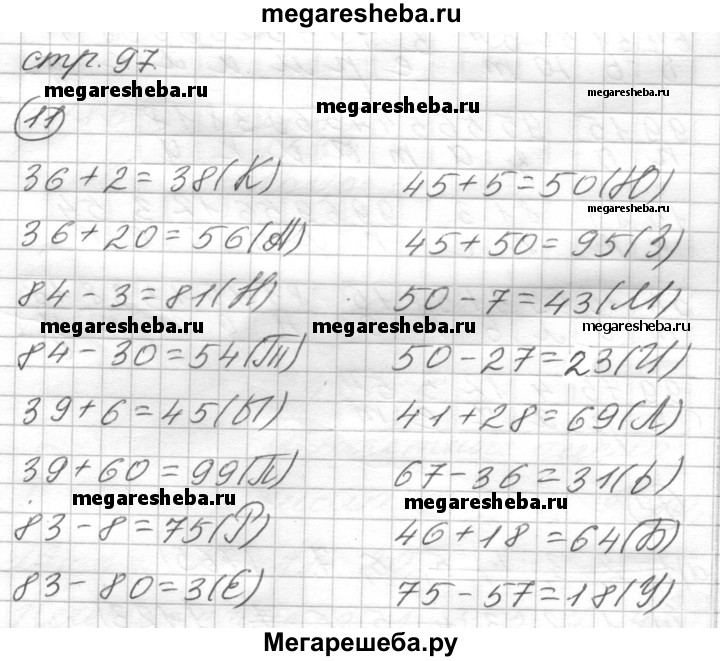 megaresheba.ru
стр. 97
megaresheba.ru megaresheba.ru megaresheba.ru
11
36+2=38(К) 45+5=50(Ю)
megaresheba.ru
36+20=56(А) 45+50=95(З)
84-3=81(Н) 50-7=43(М)
megaresheba.ru megaresheba.ru megaresheba.ru
84-30=54(Т) 50-27=23(И)
39+6=45(Ы) 41+28=69(Л)
39+60=99(П) 67-36=31(Ь)
megaresheba.ru megaresheba.ru
83-8=75(Р) 46+18=64(Б)
83-80=3(Е) 75-57=18(У)
Мегарешеба.ру